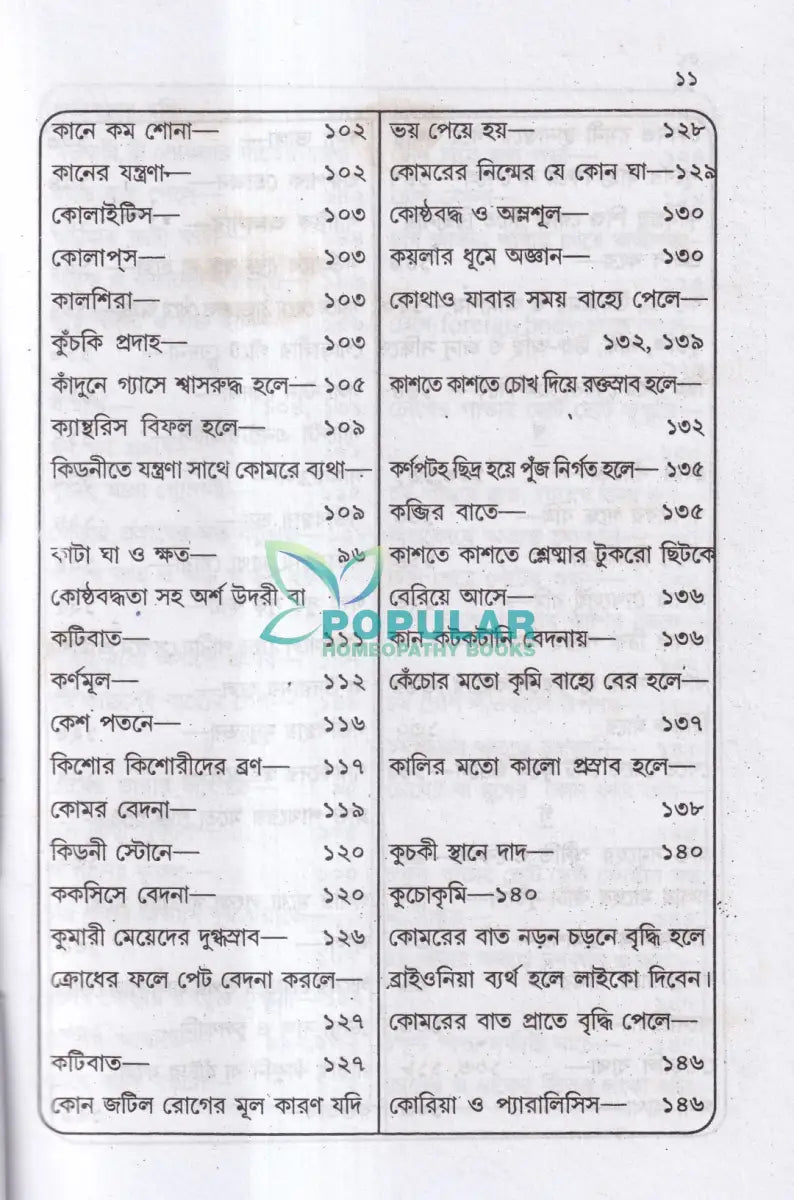 ১১
কানে কম শোনা— ১০২
কানের যন্ত্রণা— ১০২
কোলাইটিস— ১০৩
কোলাপ্‌স— ১০৩
কালশিরা— ১০৩
কুঁচকি প্রদাহ— ১০৩
কাঁদুনে গ্যাসে শ্বাসরুদ্ধ হলে— ১০৫
ক্যান্থরিস বিফল হলে— ১০৯
কিডনীতে যন্ত্রণা সাথে কোমরে ব্যথা—
১০৯
কাটা ঘা ও ক্ষত— ৯৬
কোষ্ঠবদ্ধতা সহ অর্শ উদরী বা
কটিবাত— ১১১
কর্ণমূল— ১১২
কেশ পতনে— ১১৬
কিশোর কিশোরীদের ব্রণ— ১১৭
কোমর বেদনা— ১১৯
কিডনী স্টোনে— ১২০
ককসিসে বেদনা— ১২০
কুমারী মেয়েদের দুগ্ধস্রাব— ১২৬
ক্রোধের ফলে পেট বেদনা করলে—
১২৭
কটিবাত— ১২৭
কোন জটিল রোগের মূল কারণ যদি
ভয় পেয়ে হয়— ১২৮
কোমরের নিম্মের যে কোন ঘা—১২৯
কোষ্ঠবদ্ধ ও অম্লশূল— ১৩০
কয়লার ধূমে অজ্ঞান— ১৩০
কোথাও যাবার সময় বাহ্যে পেলে—
১৩২, ১৩৯
কাশতে কাশতে চোখ দিয়ে রক্তস্রাব হলে—
১৩২
কর্ণপটহ ছিদ্র হয়ে পুঁজ নির্গত হলে— ১৩৫
কব্জির বাতে— ১৩৫
কাশতে কাশতে শ্লেষ্মার টুকরো ছিটকে
বেরিয়ে আসে— ১৩৬
কান কটকটানি বেদনায়— ১৩৬
কেঁচোর মতো কৃমি বাহ্যে বের হলে—
১৩৭
কালির মতো কালো প্রস্রাব হলে—
১৩৮
কুচকী স্থানে দাদ— ১৪০
কুচোকৃমি—১৪০
কোমরের বাত নড়ন চড়নে বৃদ্ধি হলে
ব্রাইওনিয়া ব্যর্থ হলে লাইকো দিবেন।
কোমরের বাত প্রাতে বৃদ্ধি পেলে—
১৪৬
কোরিয়া ও প্যারালিসিস— ১৪৬
POPULAR
HOMEOPATHY BOOKS